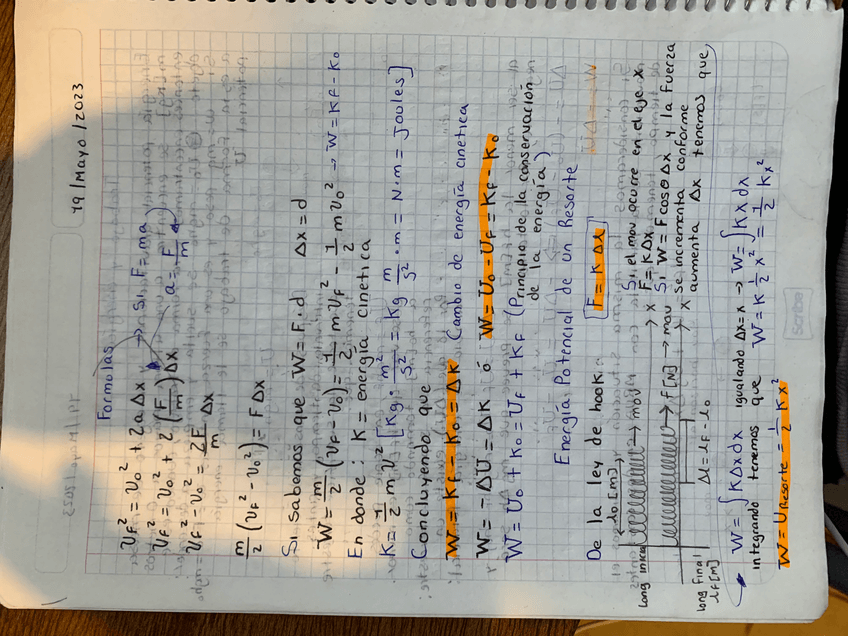 19/Mayo/2023
Formulas
Vf² = Vo² + 2a Δx → Si F=ma
Vf² = Vo² + 2 (F/m) Δx a = F/m
Vf² - Vo² = 2F/m Δx
m/2 (Vf² - Vo²) = F Δx
Si sabemos que W = F·d Δx = d
W = m/2 (Vf² - Vo²) = 1/2 m Vf² - 1/2 m Vo² → W = Kf - Ko
En donde: K = energía cinetica
K = 1/2 m V² [Kg · m²/s² = Kg m/s² · m = N·m = Joules]
Concluyendo que
W = Kf - Ko = ΔK Cambio de energía cinetica
W = -ΔU = ΔK ó W = Uo - Uf = Kf - Ko
W = Uo + Ko = Uf + Kf (Principio de la conservación
de la energía)
Energía Potencial de un Resorte
De la ley de hook: F = K Δl
lo [m] Si el mov ocurre en el eje x,
long inicial → mov → x F = K Δx
Si W = F cos θ Δx y la fuerza
→ f [N] → mov se incrementa conforme
→ x aumenta Δx tenemos que,
long final Δl = lf - lo
lf [m]
W = ∫ K Δx dx igualando Δx = x → W = ∫ K x dx
integrando tenemos que W = K 1/2 x² = 1/2 K x²
W = U Resorte = 1/2 K x²
Scribe